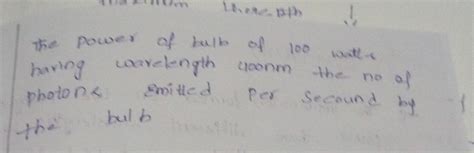 the power of bulb of 100 watts
having wavelength 400nm the no of
photons emitted per secound by
the bulb